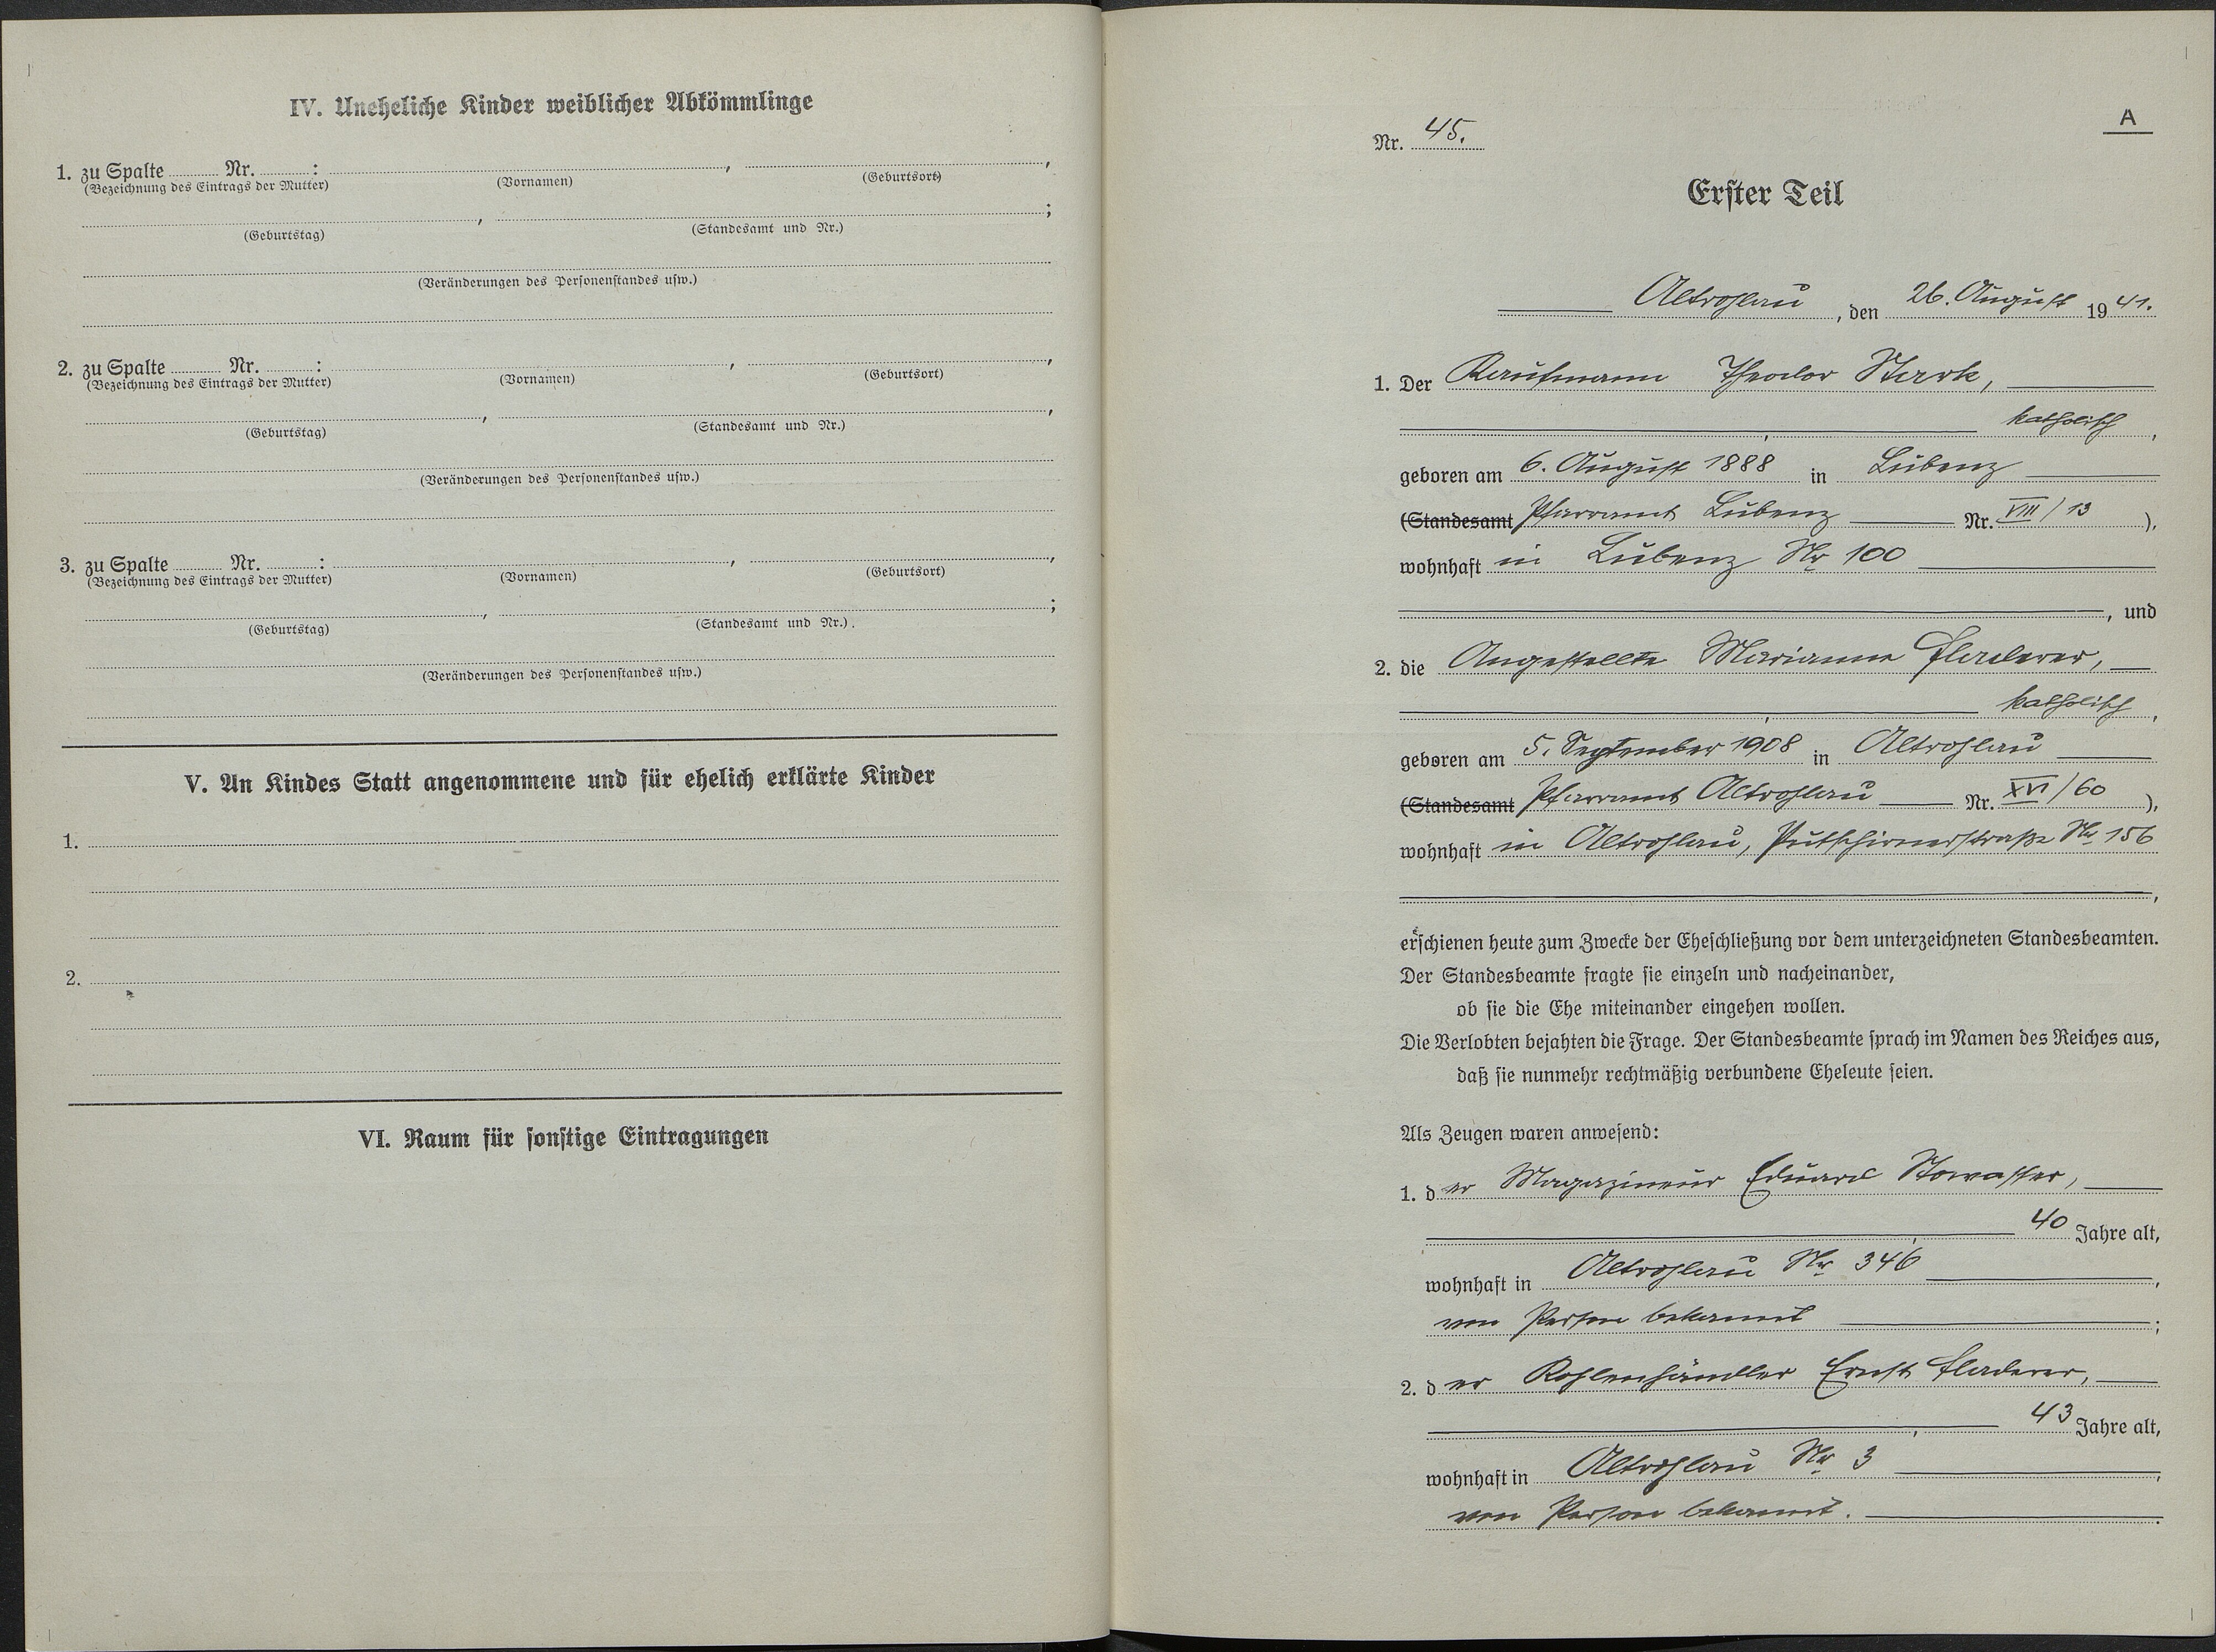 IV. Uneheliche Kinder weiblicher Abkömmlinge
1. zu Spalte ........ Nr. ........: ........, ........,
(Bezeichnung des Eintrags der Mutter) (Vornamen) (Geburtsort)
........, ........;
(Geburtstag) (Standesamt und Nr.)
(Veränderungen des Personenstandes usw.)
2. zu Spalte ........ Nr. ........: ........, ........,
(Bezeichnung des Eintrags der Mutter) (Vornamen) (Geburtsort)
........, ........,
(Geburtstag) (Standesamt und Nr.)
(Veränderungen des Personenstandes usw.)
3. zu Spalte ........ Nr. ........: ........, ........,
(Bezeichnung des Eintrags der Mutter) (Vornamen) (Geburtsort)
........, ........;
(Geburtstag) (Standesamt und Nr.)
(Veränderungen des Personenstandes usw.)
V. An Kindes Statt angenommene und für ehelich erklärte Kinder
1.
2.
VI. Raum für sonstige Eintragungen
A
Nr. 45.
Erster Teil
Altrohlau, den 26. August 1941.
1. Der Kaufmann Theodor Stark,
katholisch,
geboren am 6. August 1888 in Lubenz
(Standesamt Pfarramt Lubenz Nr. VIII/13 ),
wohnhaft in Lubenz Nr 100
, und
2. die Angestellte Marianne Fladerer,
katholisch,
geboren am 5. September 1908 in Altrohlau
(Standesamt Pfarramt Altrohlau Nr. XVI/60 ),
wohnhaft in Altrohlau, Putschirnerstraße Nr 156
,
erschienen heute zum Zwecke der Eheschließung vor dem unterzeichneten Standesbeamten.
Der Standesbeamte fragte sie einzeln und nacheinander,
ob sie die Ehe miteinander eingehen wollen.
Die Verlobten bejahten die Frage. Der Standesbeamte sprach im Namen des Reiches aus,
daß sie nunmehr rechtmäßig verbundene Eheleute seien.
Als Zeugen waren anwesend:
1. der Magazineur Eduard Stowasser,
40 Jahre alt,
wohnhaft in Altrohlau Nr 346,
von Person bekannt;
2. der Kohlenhändler Ernst Fladerer,
43 Jahre alt,
wohnhaft in Altrohlau Nr 3,
von Person bekannt.